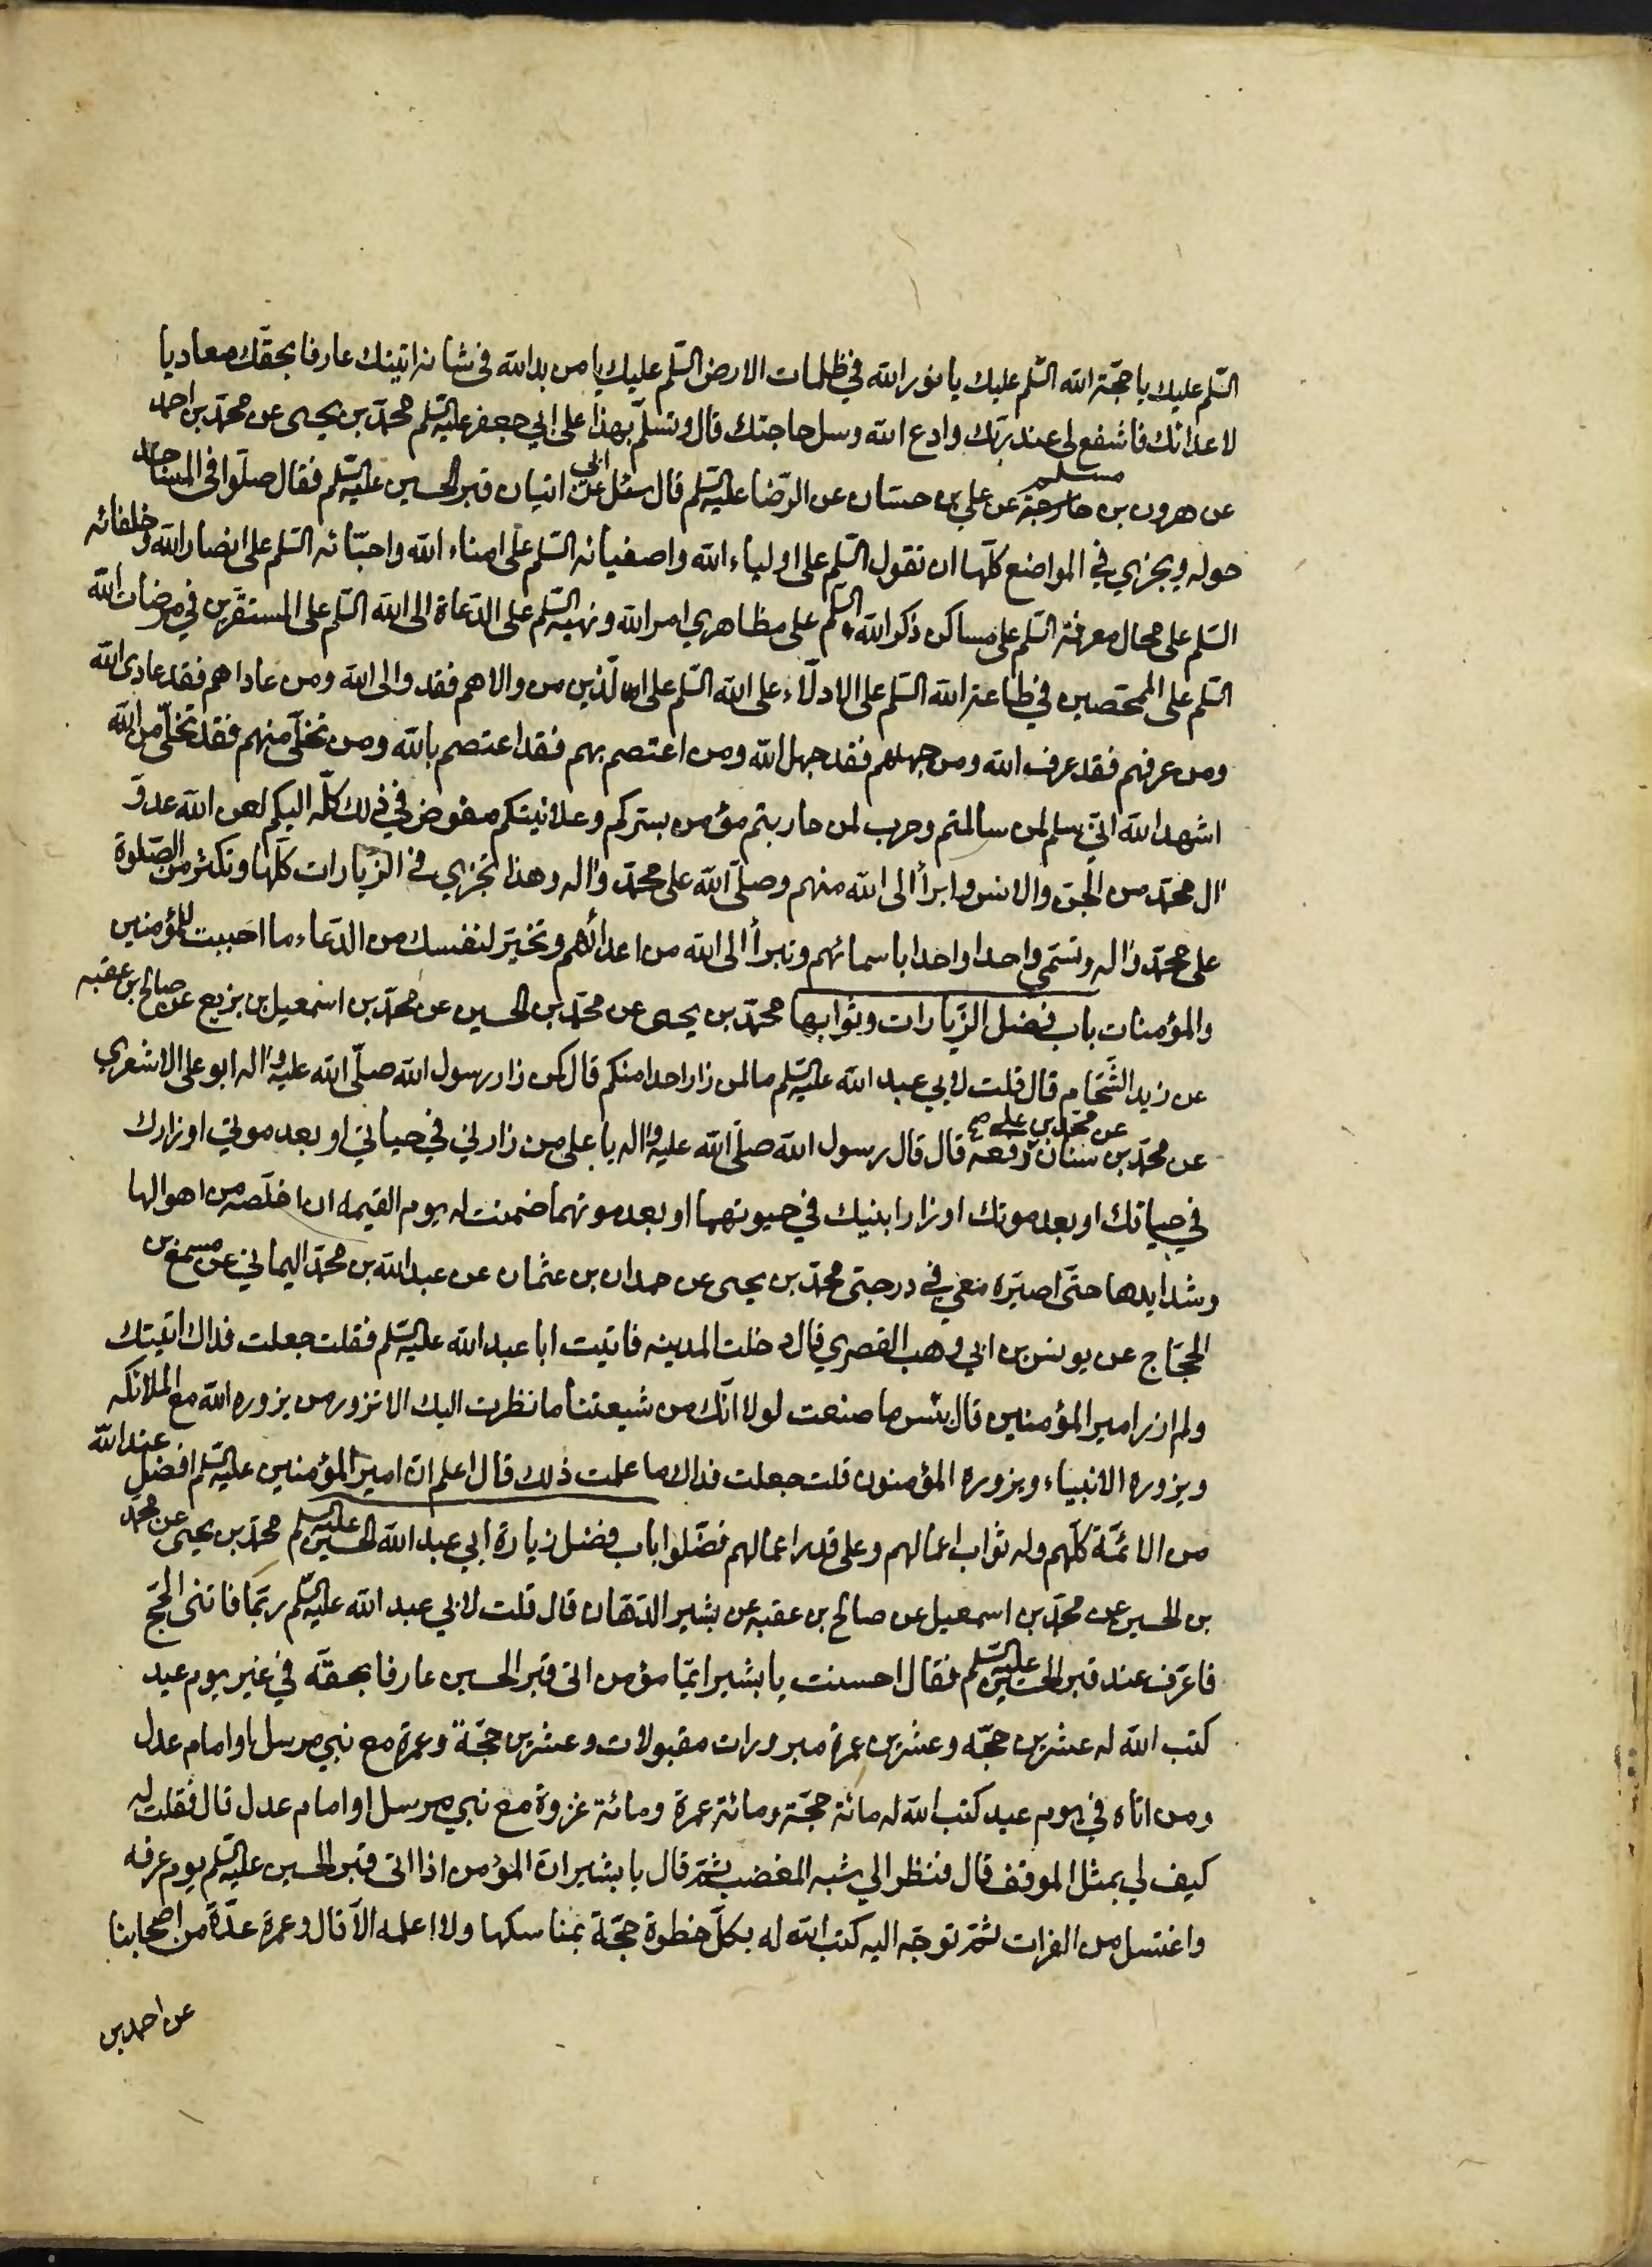 السّلم عليك يا حجّة الله السّلم عليك يا نور الله في ظلمات الارض السّلم عليك يا من بدا لله في شانه اتيتك عارفا بحقّك معاديا
لاعدائك فاشفع لى عند ربّك وادع الله وسل حاجتك قال وتسلّم بهذا على ابي جعفر عليه السّلم محمّد بن يحيى عن محمّد بن احمد
عن هرون بن مسلم عن علي بن حسّان عن الرّضا عليه السّلم قال سئل ابي عن اتيان قبر الحسين عليه السّلم فقال صلّوا في المساجد
حوله ويجزي في المواضع كلّها ان تقول السّلم على اولياء الله واصفيائه السّلم على امناء الله واحبّائه السّلم على انصار الله وخلفائه
السّلم على محال معرفة السّلم على مساكن ذكر الله السّلم على مظاهري امر الله ونهيه السّلم على الدّعاة الى الله السّلم على المستقرّين في مرضات الله
السّلم على الممحّصين في طاعة الله السّلم على الادلّاء على الله السّلم على الّذين من والاهم فقد والى الله ومن عاداهم فقد عادى الله
ومن عرفهم فقد عرف الله ومن جهلهم فقد جهل الله ومن اعتصم بهم فقد اعتصم بالله ومن تخلّى منهم فقد تخلّى من الله
اشهد الله انّي سلم لمن سالمتم وحرب لمن حاربتم مؤمن بسرّكم وعلانيتكم مفوض في ذلك كلّه اليكم لعن الله عدوّ
ال محمّد من الجنّ والانس وابرأ الى الله منهم وصلّى الله على محمّد واله وهذا يجزي في الزّيارات كلّها وتكثر من الصّلوة
على محمّد واله وتسمّي واحدا واحدا باسمائهم وتبرأ الى الله من اعدائهم وتخيّر لنفسك من الدّعاء ما احببت للمؤمنين
والمؤمنات باب فضل الزّيارات وثوابها محمّد بن يحيى عن محمّد بن الحسين عن محمّد بن اسمعيل بن بزيع عن صالح بن عقبه
عن زيد الشّحّام قال قلت لابي عبد الله عليه السّلم ما لمن زار احدا منكم قال كمن زار رسول الله صلّى الله عليه واله ابو على الاشعري
عن محمّد بن سنان عن محمّد بن علي رفعه قال قال رسول الله صلّى الله عليه واله يا على من زارني في حياتي او بعد موتي او زارك
في حياتك او بعد موتك او زار ابنيك في حيوتهما او بعد موتهما ضمنت له يوم القيمه ان اخلّصه من اهوالها
وشدايدها حتّى اصيّره معي في درجتى محمّد بن يحيى عن حمدان بن عثمان عن عبد الله بن محمّد اليماني عن مسمع بن
الحجّاج عن يونس بن ابي وهب القصري قال دخلت المدينه فاتيت ابا عبد الله عليه السّلم فقلت جعلت فداك اتيتك
ولم ازر امير المؤمنين قال بئس ما صنعت لولا انّك من شيعتنا ما نظرت اليك الا تزور من يزوره الله مع الملائكه
ويزوره الانبياء ويزوره المؤمنون قلت جعلت فداك ما علمت ذلك قال اعلم انّ امير المؤمنين عليه السّلم افضل عند الله
من الائمّة كلّهم وله ثواب اعمالهم وعلى قدر اعمالهم فضّلوا باب فضل زيارة ابي عبد الله الحسين عليه السّلم محمّد بن يحيى عن محمّد
بن الحسين عن محمّد بن اسمعيل عن صالح بن عقبه عن بشير الدّهان قال قلت لابي عبد الله عليه السّلم ربّما فاتنى الحجّ
فاعرّف عند قبر الحسين عليه السّلم فقال احسنت يا بشير ايّما مؤمن اتى قبر الحسين عارفا بحقّه في غير يوم عيد
كتب الله له عشرين حجّه وعشرين عمرة مبرورات مقبولات وعشرين حجّة وعمرة مع نبي مرسل او امام عدل
ومن اتاه في يوم عيد كتب الله له مائة حجّة ومائة عمرة ومائة غزوة مع نبي مرسل او امام عدل قال فقلت له
كيف لي بمثل الموقف قال فنظر الي شبه المغضب ثمّ قال يا بشير انّ المؤمن اذا اتى قبر الحسين عليه السّلم يوم عرفه
واغتسل من الفرات ثمّ توجّه اليه كتب الله له بكلّ خطوة حجّة بمناسكها ولا اعلمه الّا قال وعمرة عدّة من اصحابنا
عن احمد بن